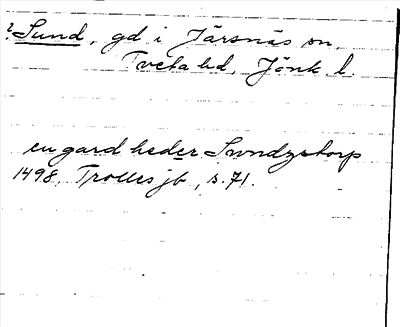 ? Sund, gd i Järsnäs sn,
Tveta hd, Jönk. l.
en gard heder Sundzstorp
1498, Trolles jb, s. 71.